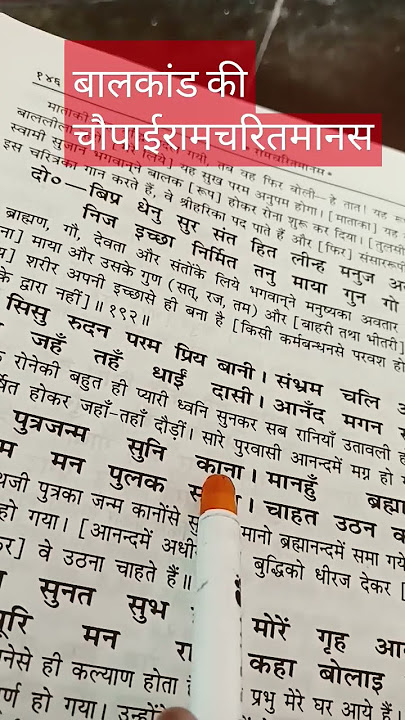 बालकांड की
चौपाईरामचरितमानस
१४६
रामचरितमानस *
माताकी
गयी, तब वह फिर बोली—हे तात! यह रूप
बाललीला
लिये] यह सुख परम अनुपम होगा। [माताका] यह
स्वामी सुजान भगवान्‌ने बालक [रूप] होकर रोना शुरू कर दिया। [तुलसी
इस चरित्रका गान करते हैं, वे श्रीहरिका पद पाते हैं और [फिर] संसाररूपी
दो०—बिप्र धेनु सुर संत हित लीन्ह मनुज
निज इच्छा निर्मित तनु माया गुन गो
ब्राह्मण, गौ, देवता और संतोंके लिये भगवान्‌ने मनुष्यका अवतार
माया और उसके गुण (सत्, रज, तम) और [बाहरी तथा भीतरी]
शरीर अपनी इच्छासे ही बना है [किसी कर्मबन्धनसे परवश
के द्वारा नहीं]॥ १९२॥
सिसु रुदन परम प्रिय बानी। संभ्रम चलि
जहँ तहँ धाईं दासी। आनँद मगन
रोनेकी बहुत ही प्यारी ध्वनि सुनकर सब रानियाँ उतावली
होकर जहाँ-तहाँ दौड़ीं। सारे पुरवासी आनन्दमें मग्न हो
पुत्रजन्म सुनि काना। मानहुँ
मन पुलक चाहत उठन
पुत्रका जन्म कानोंसे मानो ब्रह्मानन्दमें समा गये
हो गया। [आनन्दमें बुद्धिको धीरज देकर
वे उठना चाहते हैं॥
सुनत सुभ मोरें गृह
मन कहा बोलाइ
ही कल्याण होता प्रभु मेरे घर आये हैं।
हो गया।